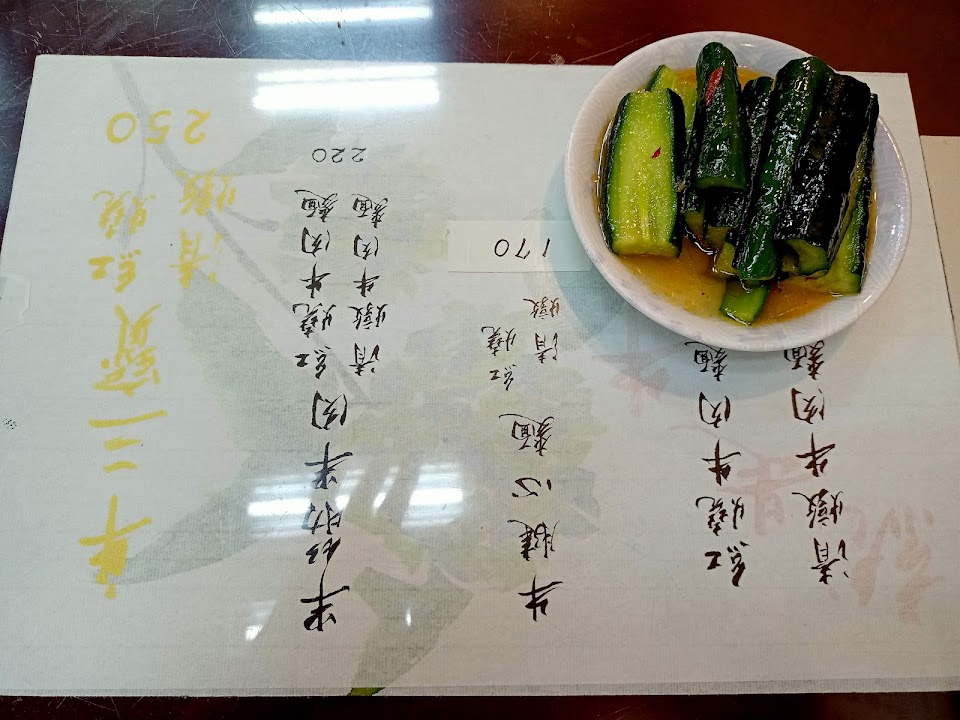 牛三寶
紅燒
清燉
250
半筋半肉
紅燒牛肉麵
清燉牛肉麵
220
牛腱心麵
紅燒
清燉
170
紅燒牛肉麵
清燉牛肉麵